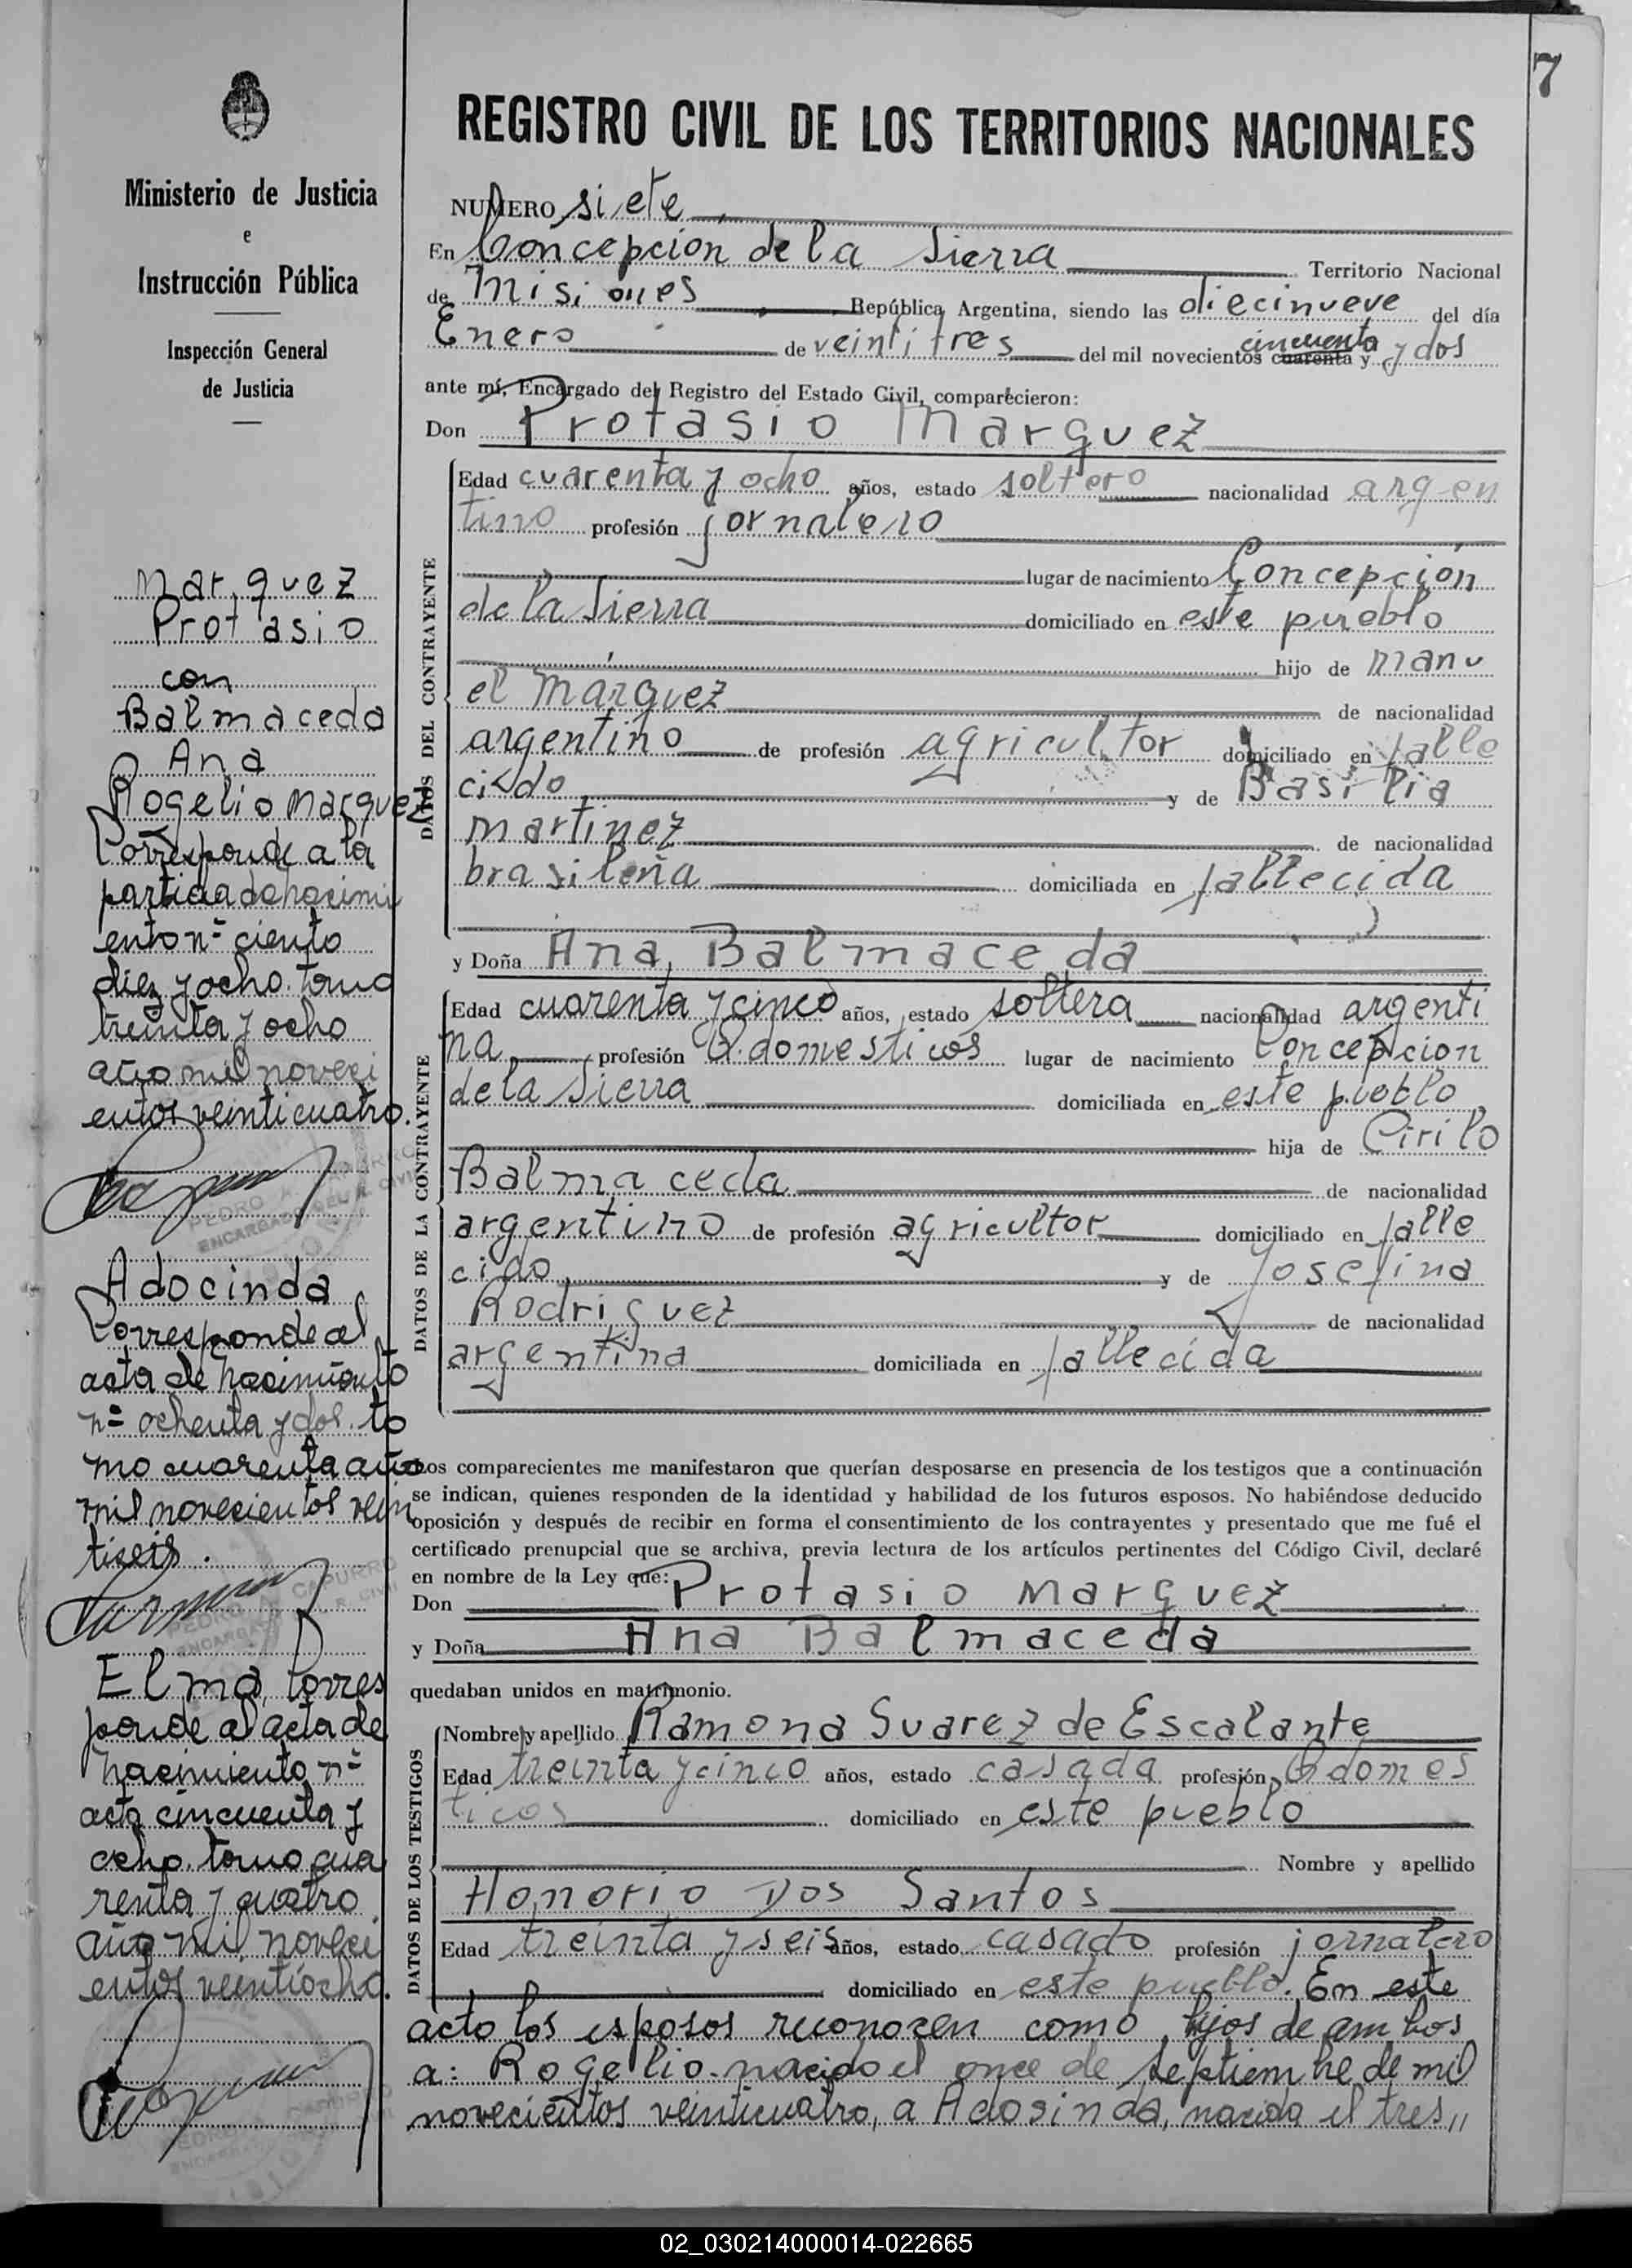 7
REGISTRO CIVIL DE LOS TERRITORIOS NACIONALES
Ministerio de Justicia
e
Instrucción Pública
Inspección General
de Justicia
NUMERO siete
En Concepción de la Sierra Territorio Nacional
de Misiones República Argentina, siendo las diecinueve del día
Enero de veintitres del mil novecientos cuarenta y cincuenta y dos
ante mí, Encargado del Registro del Estado Civil, comparecieron:
Don Protasio Marquez
DATOS DEL CONTRAYENTE
Edad cuarenta y ocho años, estado soltero nacionalidad argen
tino profesión jornalero
lugar de nacimiento Concepción
de la Sierra domiciliado en este pueblo
hijo de Manu
el Marquez de nacionalidad
argentino de profesión agricultor domiciliado en falle
cido y de Basilia
Martinez de nacionalidad
brasileña domiciliada en fallecida
y Doña Ana Balmaceda
DATOS DE LA CONTRAYENTE
Edad cuarenta y cinco años, estado soltera nacionalidad argenti
na profesión Q. domesticos lugar de nacimiento Concepcion
de la Sierra domiciliada en este pueblo
hija de Cirilo
Balmaceda de nacionalidad
argentino de profesión agricultor domiciliado en falle
cido y de Josefina
Rodriguez de nacionalidad
argentina domiciliada en fallecida
Los comparecientes me manifestaron que querían desposarse en presencia de los testigos que a continuación
se indican, quienes responden de la identidad y habilidad de los futuros esposos. No habiéndose deducido
oposición y después de recibir en forma el consentimiento de los contrayentes y presentado que me fué el
certificado prenupcial que se archiva, previa lectura de los artículos pertinentes del Código Civil, declaré
en nombre de la Ley que:
Don Protasio Marquez
y Doña Ana Balmaceda
quedaban unidos en matrimonio.
DATOS DE LOS TESTIGOS
Nombre y apellido Ramona Suarez de Escalante
Edad treinta y cinco años, estado casada profesión Q domes
ticos domiciliado en este pueblo
Nombre y apellido
Honorio Dos Santos
Edad treinta y seis años, estado casado profesión jornalero
domiciliado en este pueblo. En este
acto los esposos reconozen como hijos de ambos
a: Rogelio. nacido el once de septiembre de mil
novecientos veinticuatro, a Adosinda, nacida el tres,,
Marquez
Protasio
con
Balmaceda
Ana
Rogelio Marquez
Corresponde a la
partida de nacimi
ento nº ciento
diez y ocho. tomo
treinta y ocho
año mil noveci
entos veinticuatro.
PEDRO A. CAPURRO
ENCARGADO DEL R. CIVIL
Adocinda
Corresponde al
acta de nacimiento
nº ochenta y dos. to
mo cuarenta año
mil novecientos vein
tiseis.
PEDRO A. CAPURRO
ENCARGADO R. CIVIL
Elma, Corres
ponde al acta de
nacimiento nº
acta cincuenta y
ocho. tomo cua
renta y cuatro
año mil noveci
entos veintiocho.
PEDRO CAPURRO
02_030214000014-022665